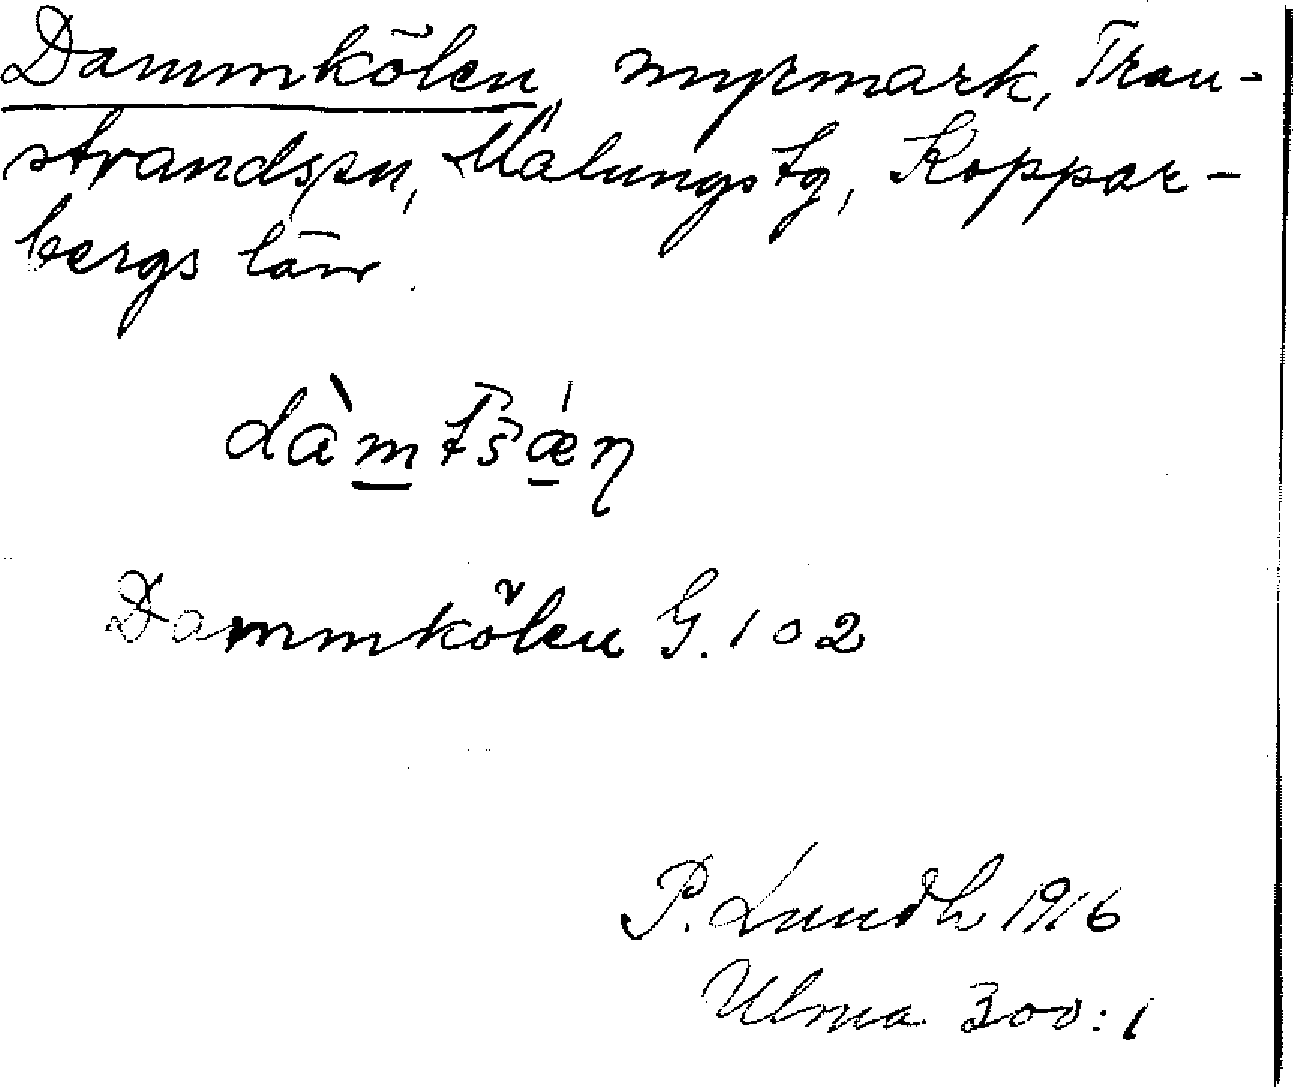 Dammkölen, myrmark, Tran-
strands sn, Malungs tg, Koppar-
bergs län.
dàm̲tšǽ̲η
Dammkölen G. 102
P. Lundh 1916
Ulma 300:1